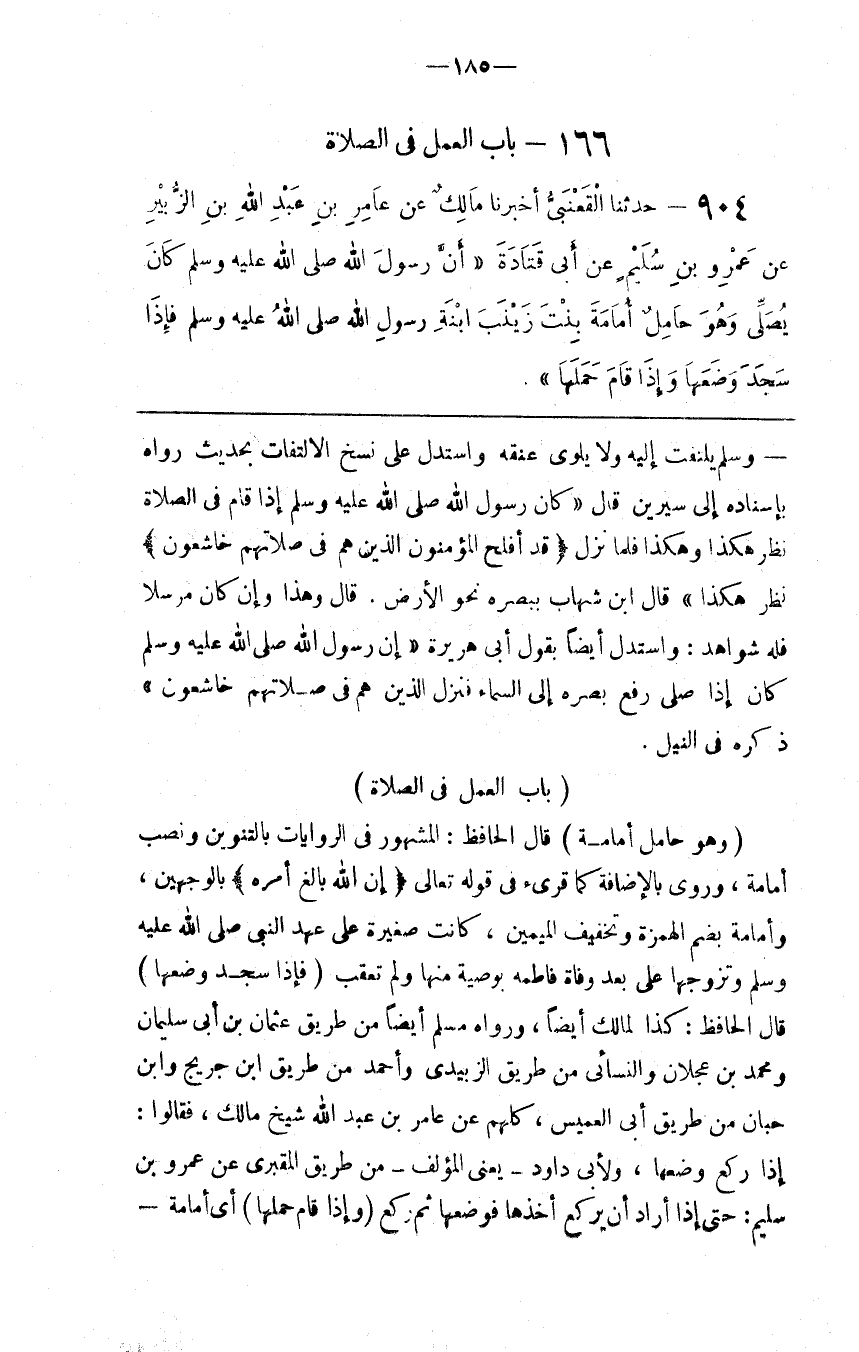 —١٨٥—
١٦٦ – باب العمل فى الصلاة
٩٠٤ – حدثنا الْقَعْنَبِىُّ أخبرنا مَالِكٌ عن عَامِرِ بنِ عَبْدِ اللهِ بنِ الزُّبَيْرِ
عن عَمْرِو بنِ سُلَيْمٍ عن أَبى قَتَادَةَ « أَنَّ رسولَ الله صلى الله عليه وسلم كَانَ
يُصَلِّى وَهُوَ حَامِلٌ أُمَامَةَ بِنْتَ زَيْنَبَ ابْنَةِ رسولِ الله صلى اللهُ عليه وسلم فإِذَا
سَجَدَ وَضَعَهَا وَإِذَا قَامَ حَمَلَهَا » .
— وسلم يلتفت إليه ولا يلوى عنقه واستدل على نسخ الالتفات بحديث رواه
بإسناده إلى سيرين قال «كان رسول الله صلى الله عليه وسلم إذا قام فى الصلاة
نظر هكذا وهكذا فلما نزل ﴿ قد أفلح المؤمنون الذين هم فى صلاتهم خاشعون ﴾
نظر هكذا » قال ابن شهاب ببصره نحو الأرض . قال وهذا وإن كان مرسلا
فله شواهد : واستدل أيضاً بقول أبى هريرة « إن رسول الله صلى الله عليه وسلم
كان إذا صلى رفع بصره إلى السماء فنزل الذين هم فى صلاتهم خاشعون »
ذكره فى النيل .
( باب العمل فى الصلاة )
( وهو حامل أمامة ) قال الحافظ : المشهور فى الروايات بالتنوين ونصب
أمامة ، وروى بالإضافة كما قرىء فى قوله تعالى ﴿ إن الله بالغ أمره ﴾ بالوجهين ،
وأمامة بضم الهمزة وتخفيف الميمين ، كانت صغيرة على عهد النبى صلى الله عليه
وسلم وتزوجها على بعد وفاة فاطمه بوصية منها ولم تعقب ( فإذا سجد وضعها )
قال الحافظ : كذا لمالك أيضاً ، ورواه مسلم أيضاً من طريق عثمان بن أبى سليمان
ومحمد بن عجلان والنسائى من طريق الزبيدى وأحمد من طريق ابن جريج وابن
حبان من طريق أبى العميس ، كلهم عن عامر بن عبد الله شيخ مالك ، فقالوا :
إذا ركع وضعها ، ولأبى داود – يعنى المؤلف – من طريق المقبرى عن عمرو بن
سليم : حتى إذا أراد أن يركع أخذها فوضعها ثم ركع (وإذا قام حملها ) أى أمامة —